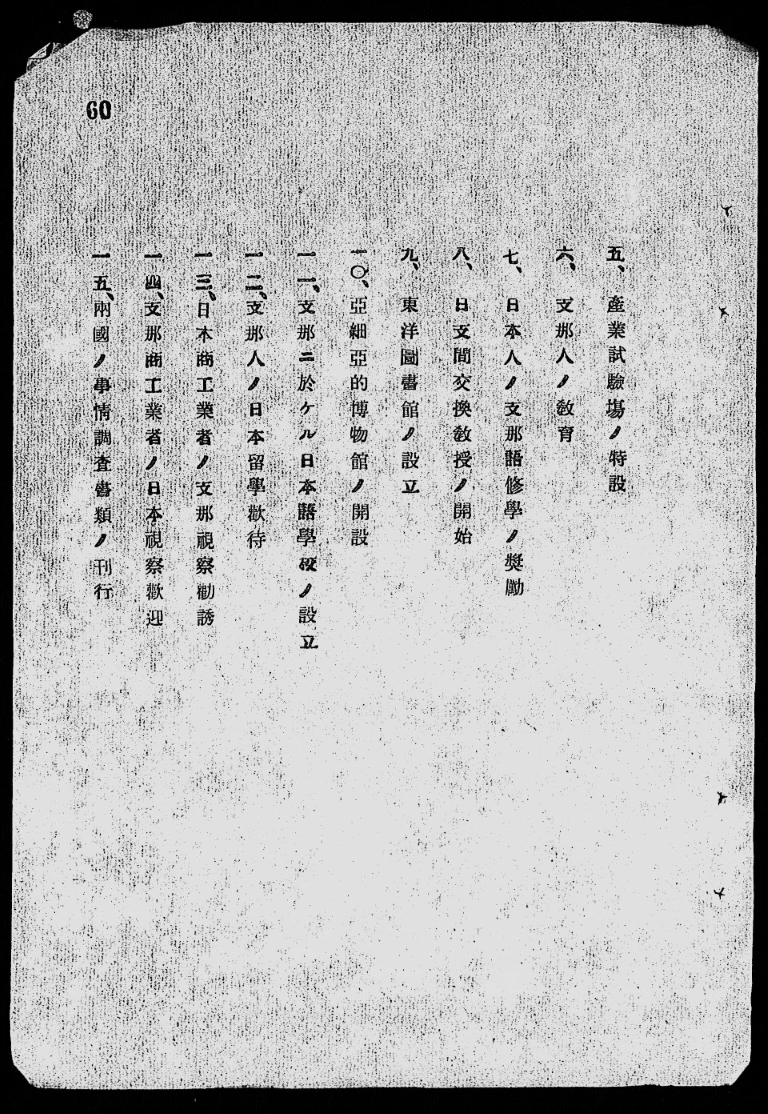 60
五、產業試驗場ノ特設
六、支那人ノ敎育
七、日本人ノ支那語修學ノ奬勵
八、日支間交換敎授ノ開始
九、東洋圖書館ノ設立
一〇、亞細亞的博物館ノ開設
一一、支那ニ於ケル日本語學校ノ設立
一二、支那人ノ日本留學歡待
一三、日本商工業者ノ支那視察勸誘
一四、支那商工業者ノ日本視察歡迎
一五、兩國ノ事情調査書類ノ刊行